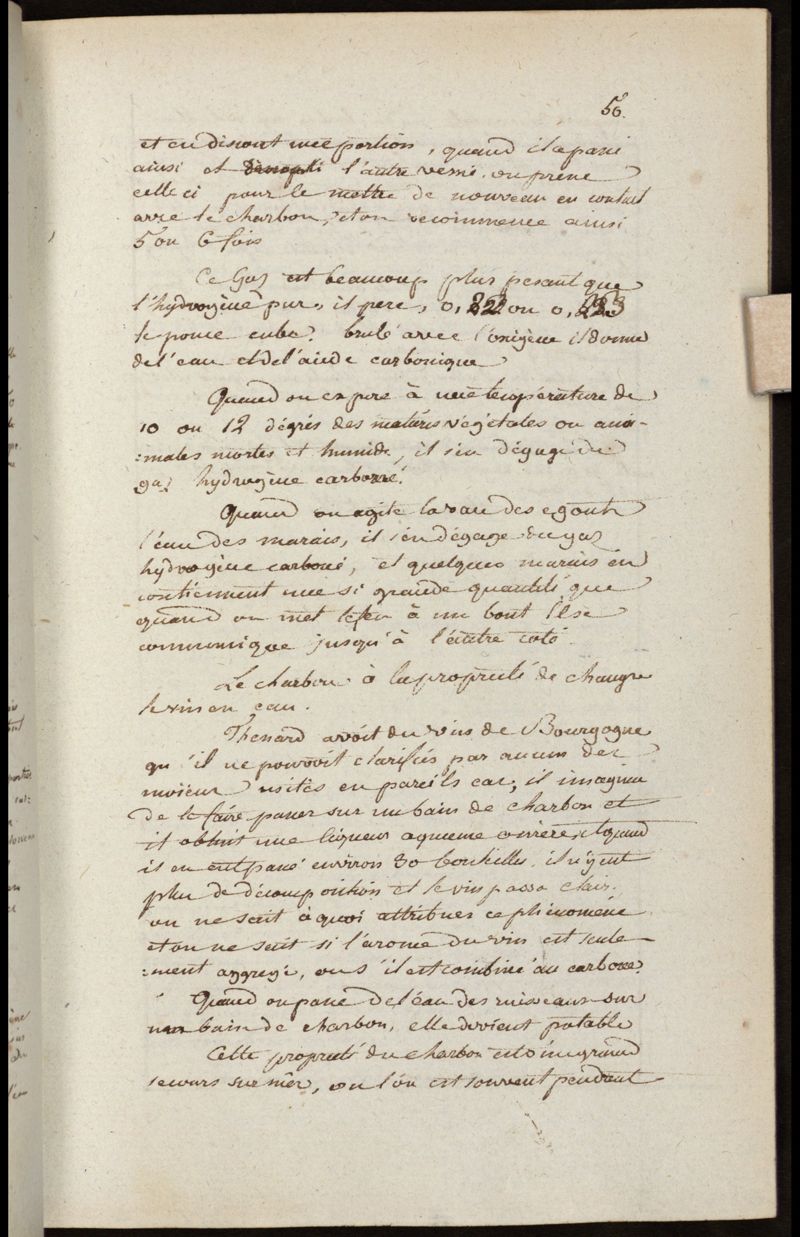 56.
et en dissout une portion, quand il a passé
ainsi et rempli l'autre vessie. on prene
celle ci pour le mettre de nouveau en contact
avec le charbon, et on recommence ainsi
5 ou 6 fois
Ce Gaz est beaucoup plus pesant que
l'hydrogène pur, il pese, 0, 22 ou 0,
le pouce cube. brulé avec l'oxigène il donne
de l'eau et de l'acide carbonique
Quand on expose à une température de
10 ou 12 dégrés des matières végétales ou ani=
:males mortes et humide, il s'en dégage du
gaz hydrogène carboné.
Quand on agite la vau des egouts
l'eau des marais, il s'en dégage du gaz
hydrogène carboné, et quelques marais en
contiennent une si grande quantité que
quand on met le feu à un bout il se
communique jusqu'à l'autre coté.
Le charbon à la propriété de changre
le vin en eau.
Thenard avoit du vin de Bourgogne
qu'il ne pouvoit clarifiés par aucun des
moieux usités en pareils cas; il imagina
de le faire passer sur un bain de charbon et
il obtint une liqueur aqueuse amère, et quand
il en eut passé environ 30 bouteilles. il n'y eut
plus de décomposition et le vin passa clair.
on ne scait à quoi attribuer ce phénomène
et on ne scait si l'arome du vin est seule=
:ment aggregé, ou s'il est combiné au carbone.
Quand on passe de l'eau des ruisseaux sur
un bain de charbon, elle devient potable
Cette propriété du charbon est d'un grand
secours sur mer, ou l'on est souvent pendant